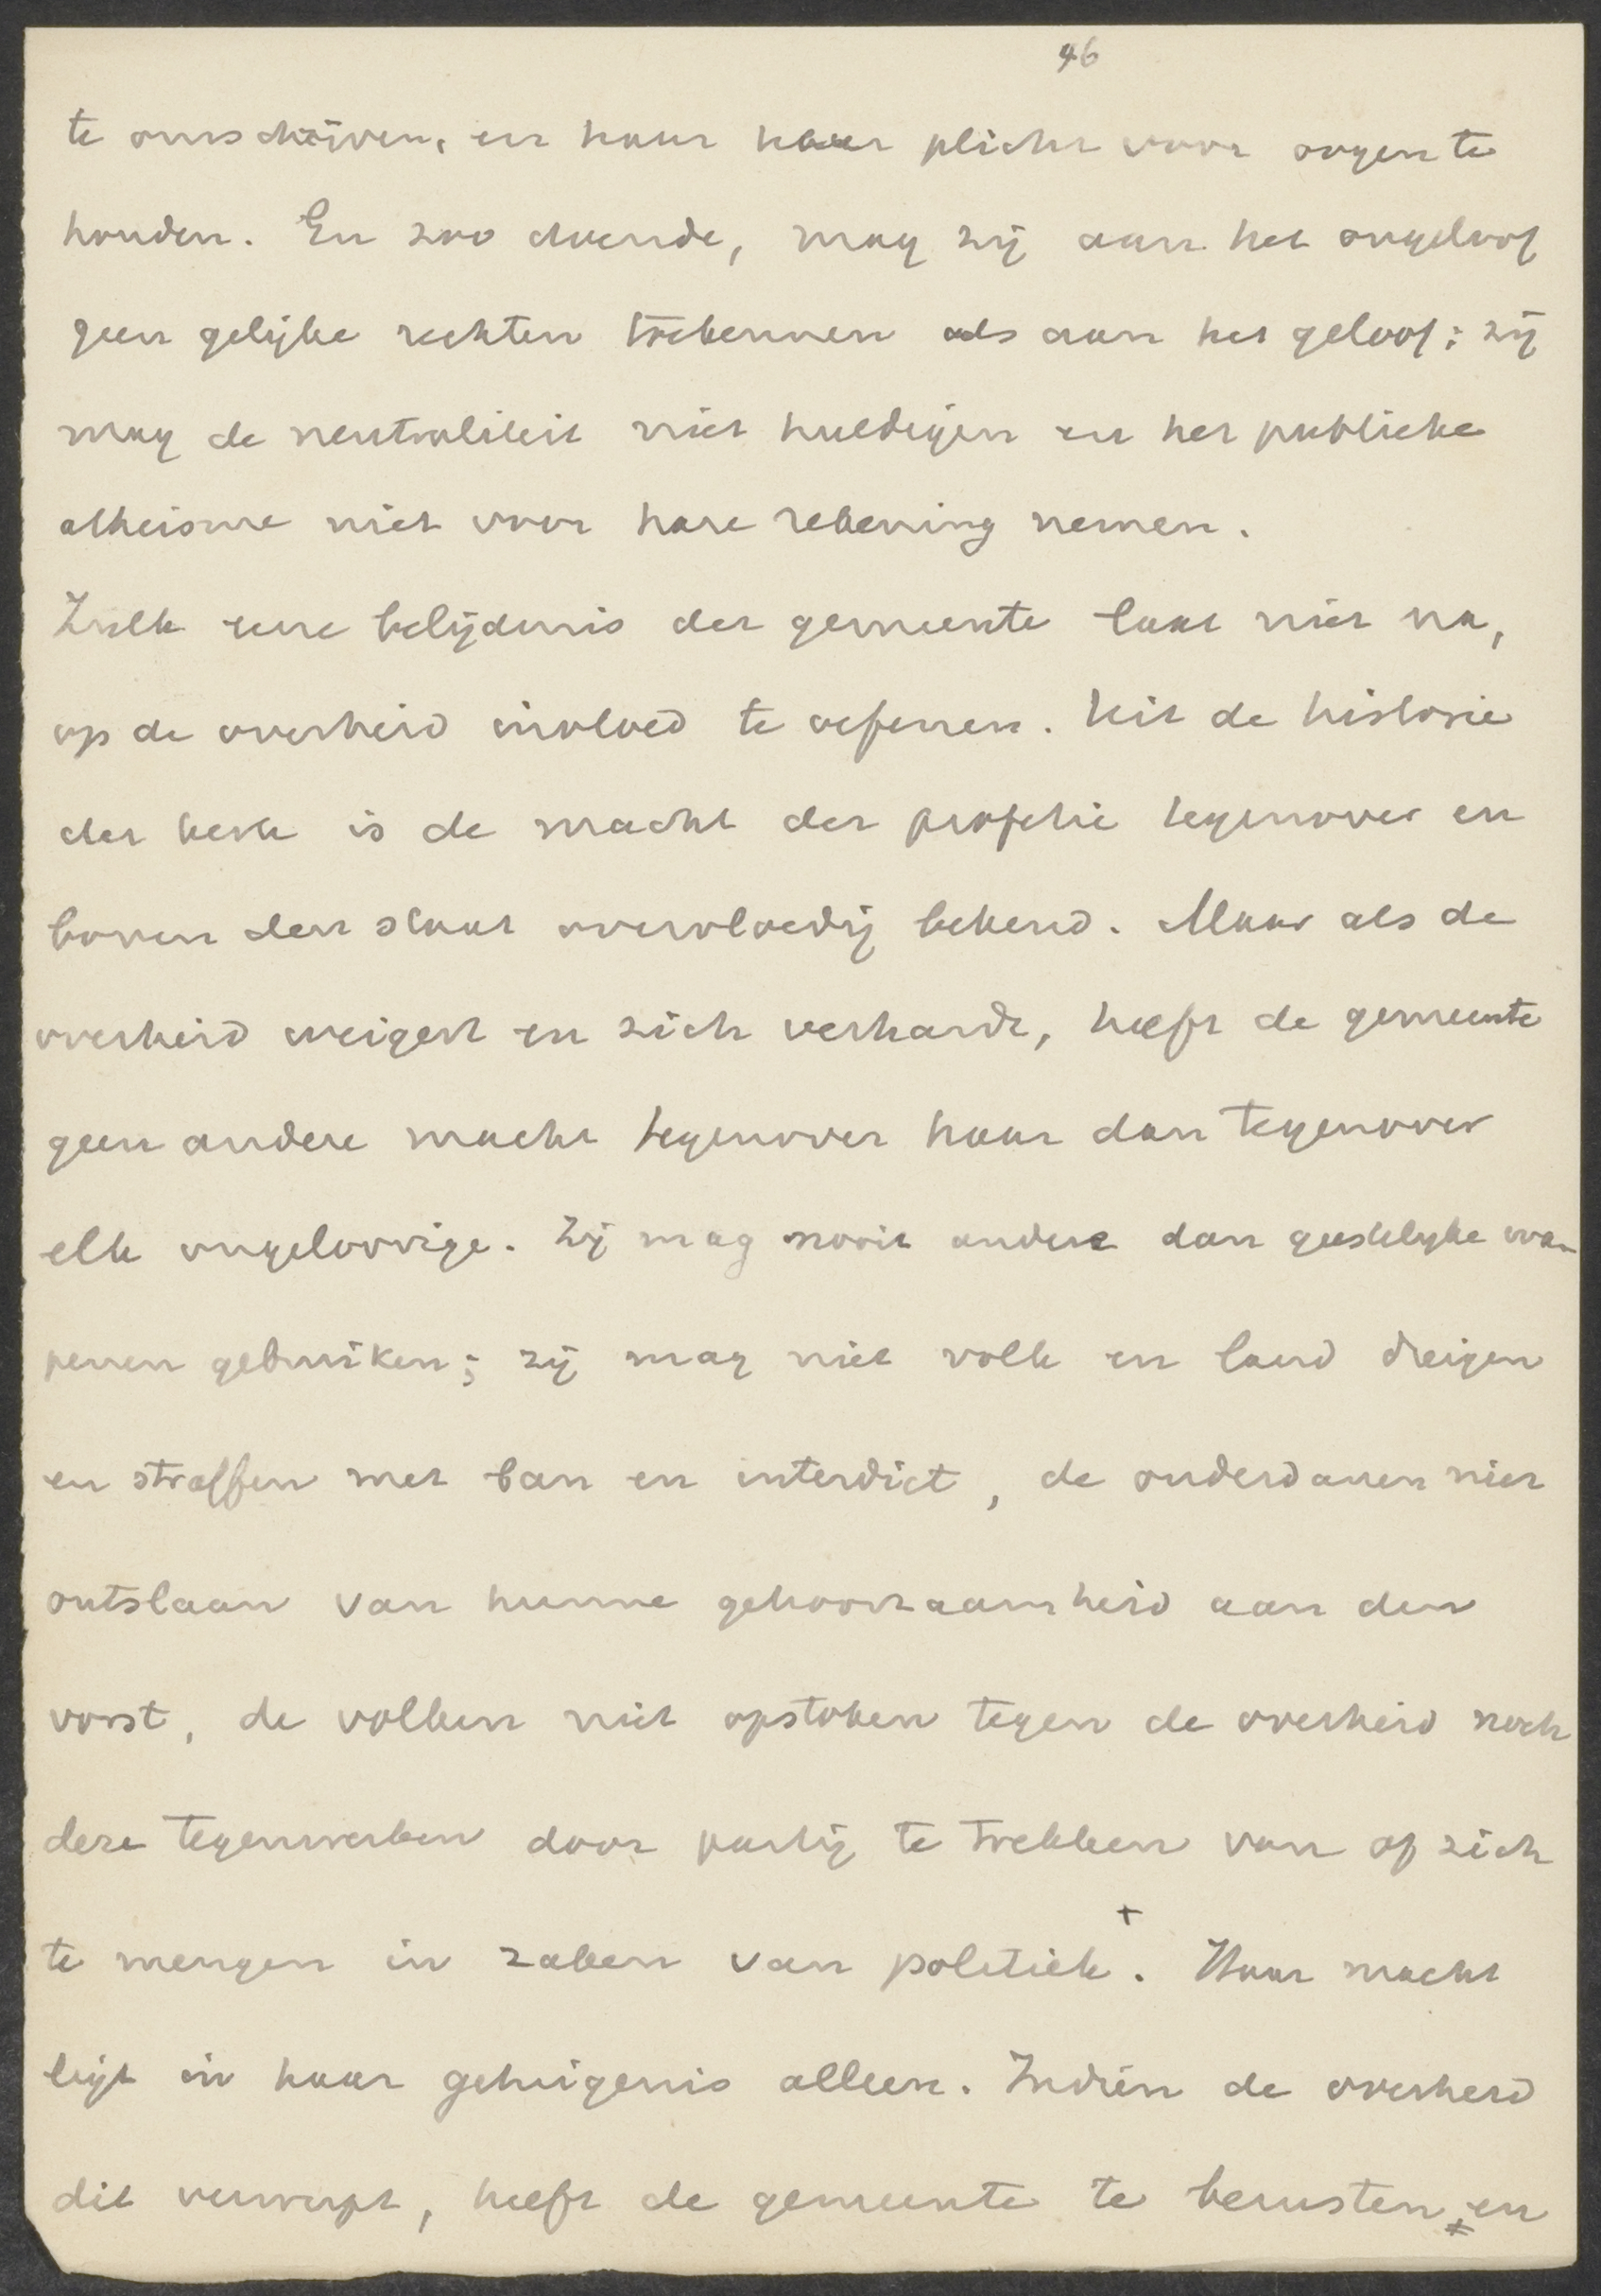 46
te omschrijven, en haar haar plicht voor oogen te
houden. En zoo doende, mag zij aan het ongeloof
geen gelijke rechten toekennen als aan het geloof; zij
mag de neutraliteit niet huldigen en het publieke
atheisme niet voor hare rekening nemen.
Zulk eene belijdenis der gemeente laat niet na,
op de overheid invloed te oefenen. Uit de historie
der kerk is de macht der profetie tegenover en
boven den staat overvloedig bekend. Maar als de
overheid weigert en zich verhardt, heeft de gemeente
geen andere macht tegenover haar dan tegenover
elk ongeloovige. Zij mag nooit andere dan geestelijke wa-
penen gebruiken; zij mag niet volk en land dreigen
en straffen met ban en interdict, de onderdanen niet
ontslaan van hunne gehoorzaamheid aan den
vorst, de volken niet opstoken tegen de overheid noch
deze tegenwerken door partij te trekken van of zich
te mengen in zaken van politiek +. Haar macht
ligt in haar getuigenis alleen. Indien de overheid
dit verwerpt, heeft de gemeente te berusten, en